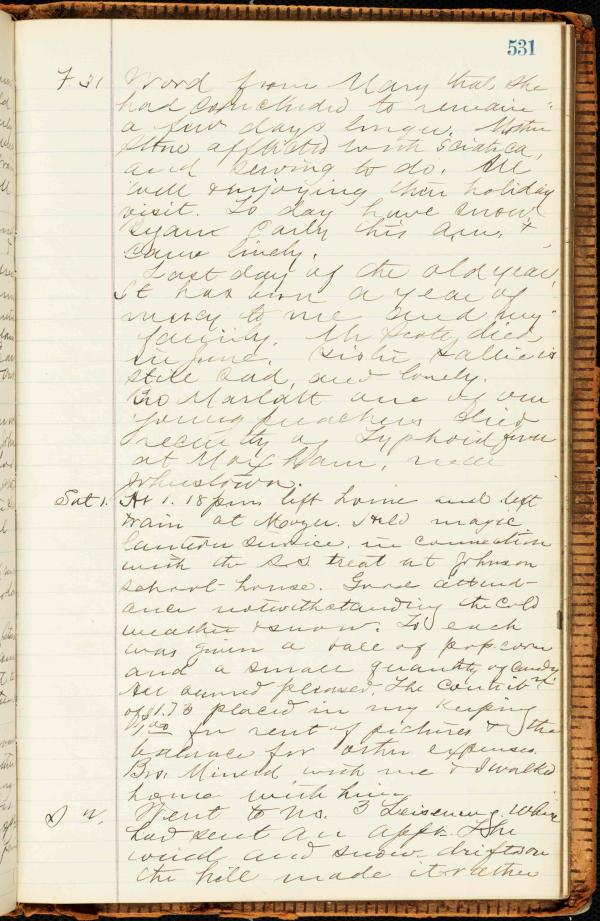 531
F. 31 Word from Mary that she
had concluded to remain
a few days longer. Mother
Stone afflicted with Sciatica,
and sewing to do. All
well & enjoying their holiday
visit. To day have snow.
Began early this a.m. &
came lively.
Last day of the old year,
It has been a year of
mercy to me and my
family. Mr Scoty died
in June. Sister Sallie is
still sad, and lonely.
Bro Marlatt one of our
young preachers died
recently of Typhoid fever
at Moxham, near
Johnstown.
Sat 1. At 1.18 pm left home and left
train at Moyer. Held magic
lantern service in connection
with the S.S. treat at Johnson
school-house. Good attend-
ance notwithstanding the cold
weather & snow. To each
was given a ball of popcorn
and a small quantity of candy
All seemed pleased. The contrib
of $1.73 placed in my keeping
for rent of pictures & the
balance for other expenses.
Bro. Minerd with me & I walked
home with him.
S 2. Went to No. 3 Leisenring. Where
had sent an appt. The
wind and snow-drifts on
the hill made it rather